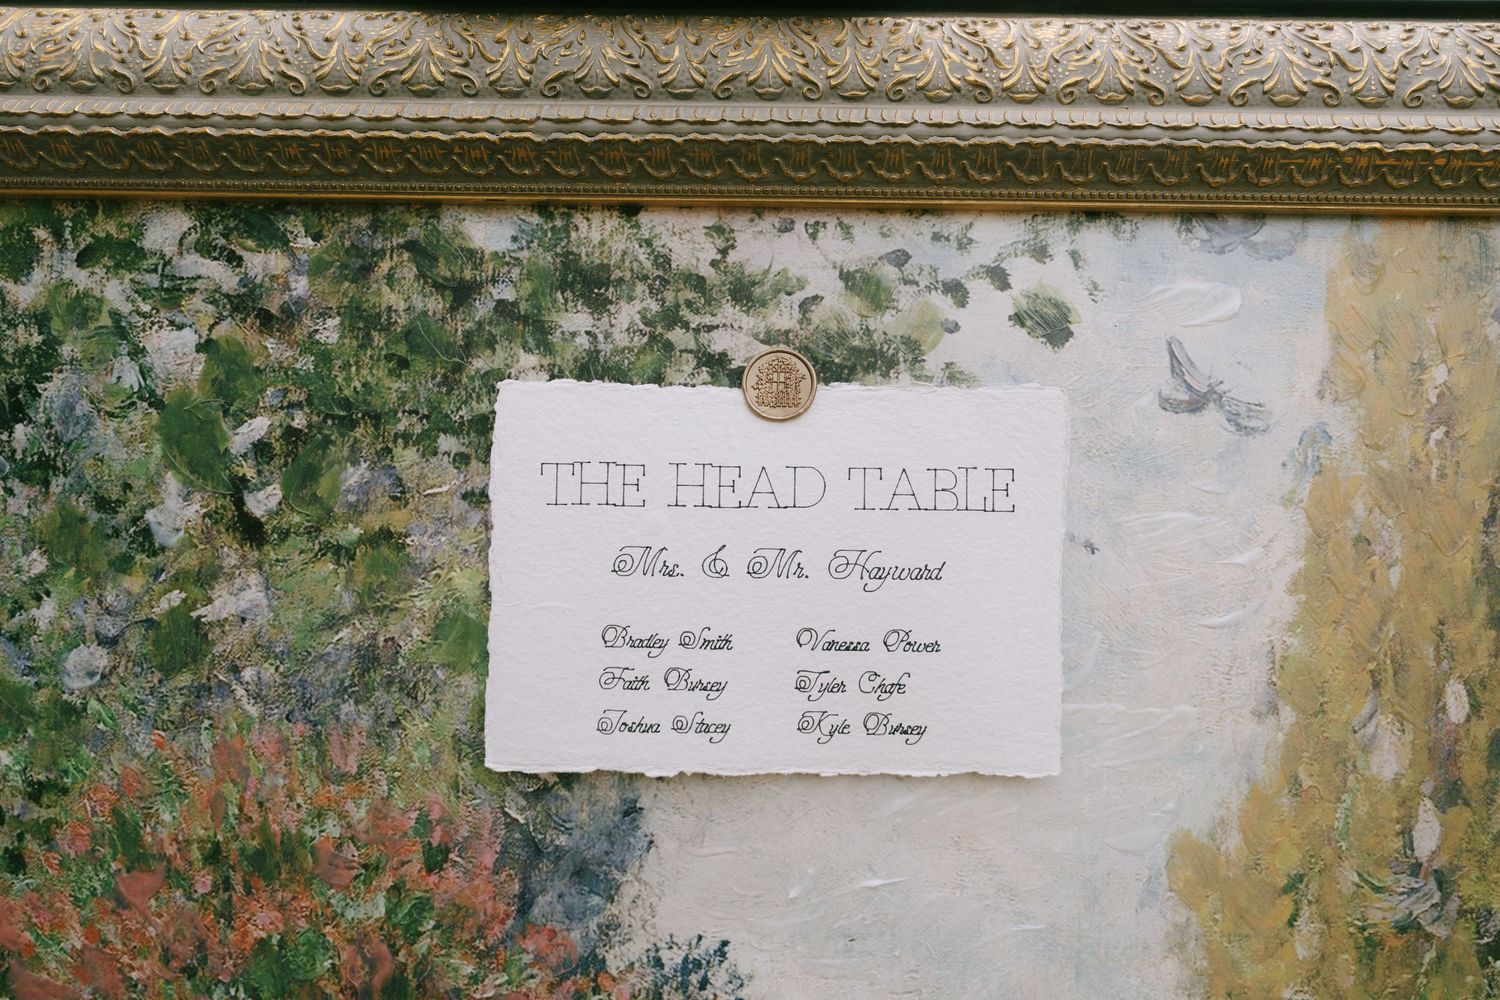 THE HEAD TABLE
Mrs. & Mr. Hayward
Bradley Smith Vanessa Power
Faith Bursey Tyler Chafe
Joshua Stacey Kyle Bursey